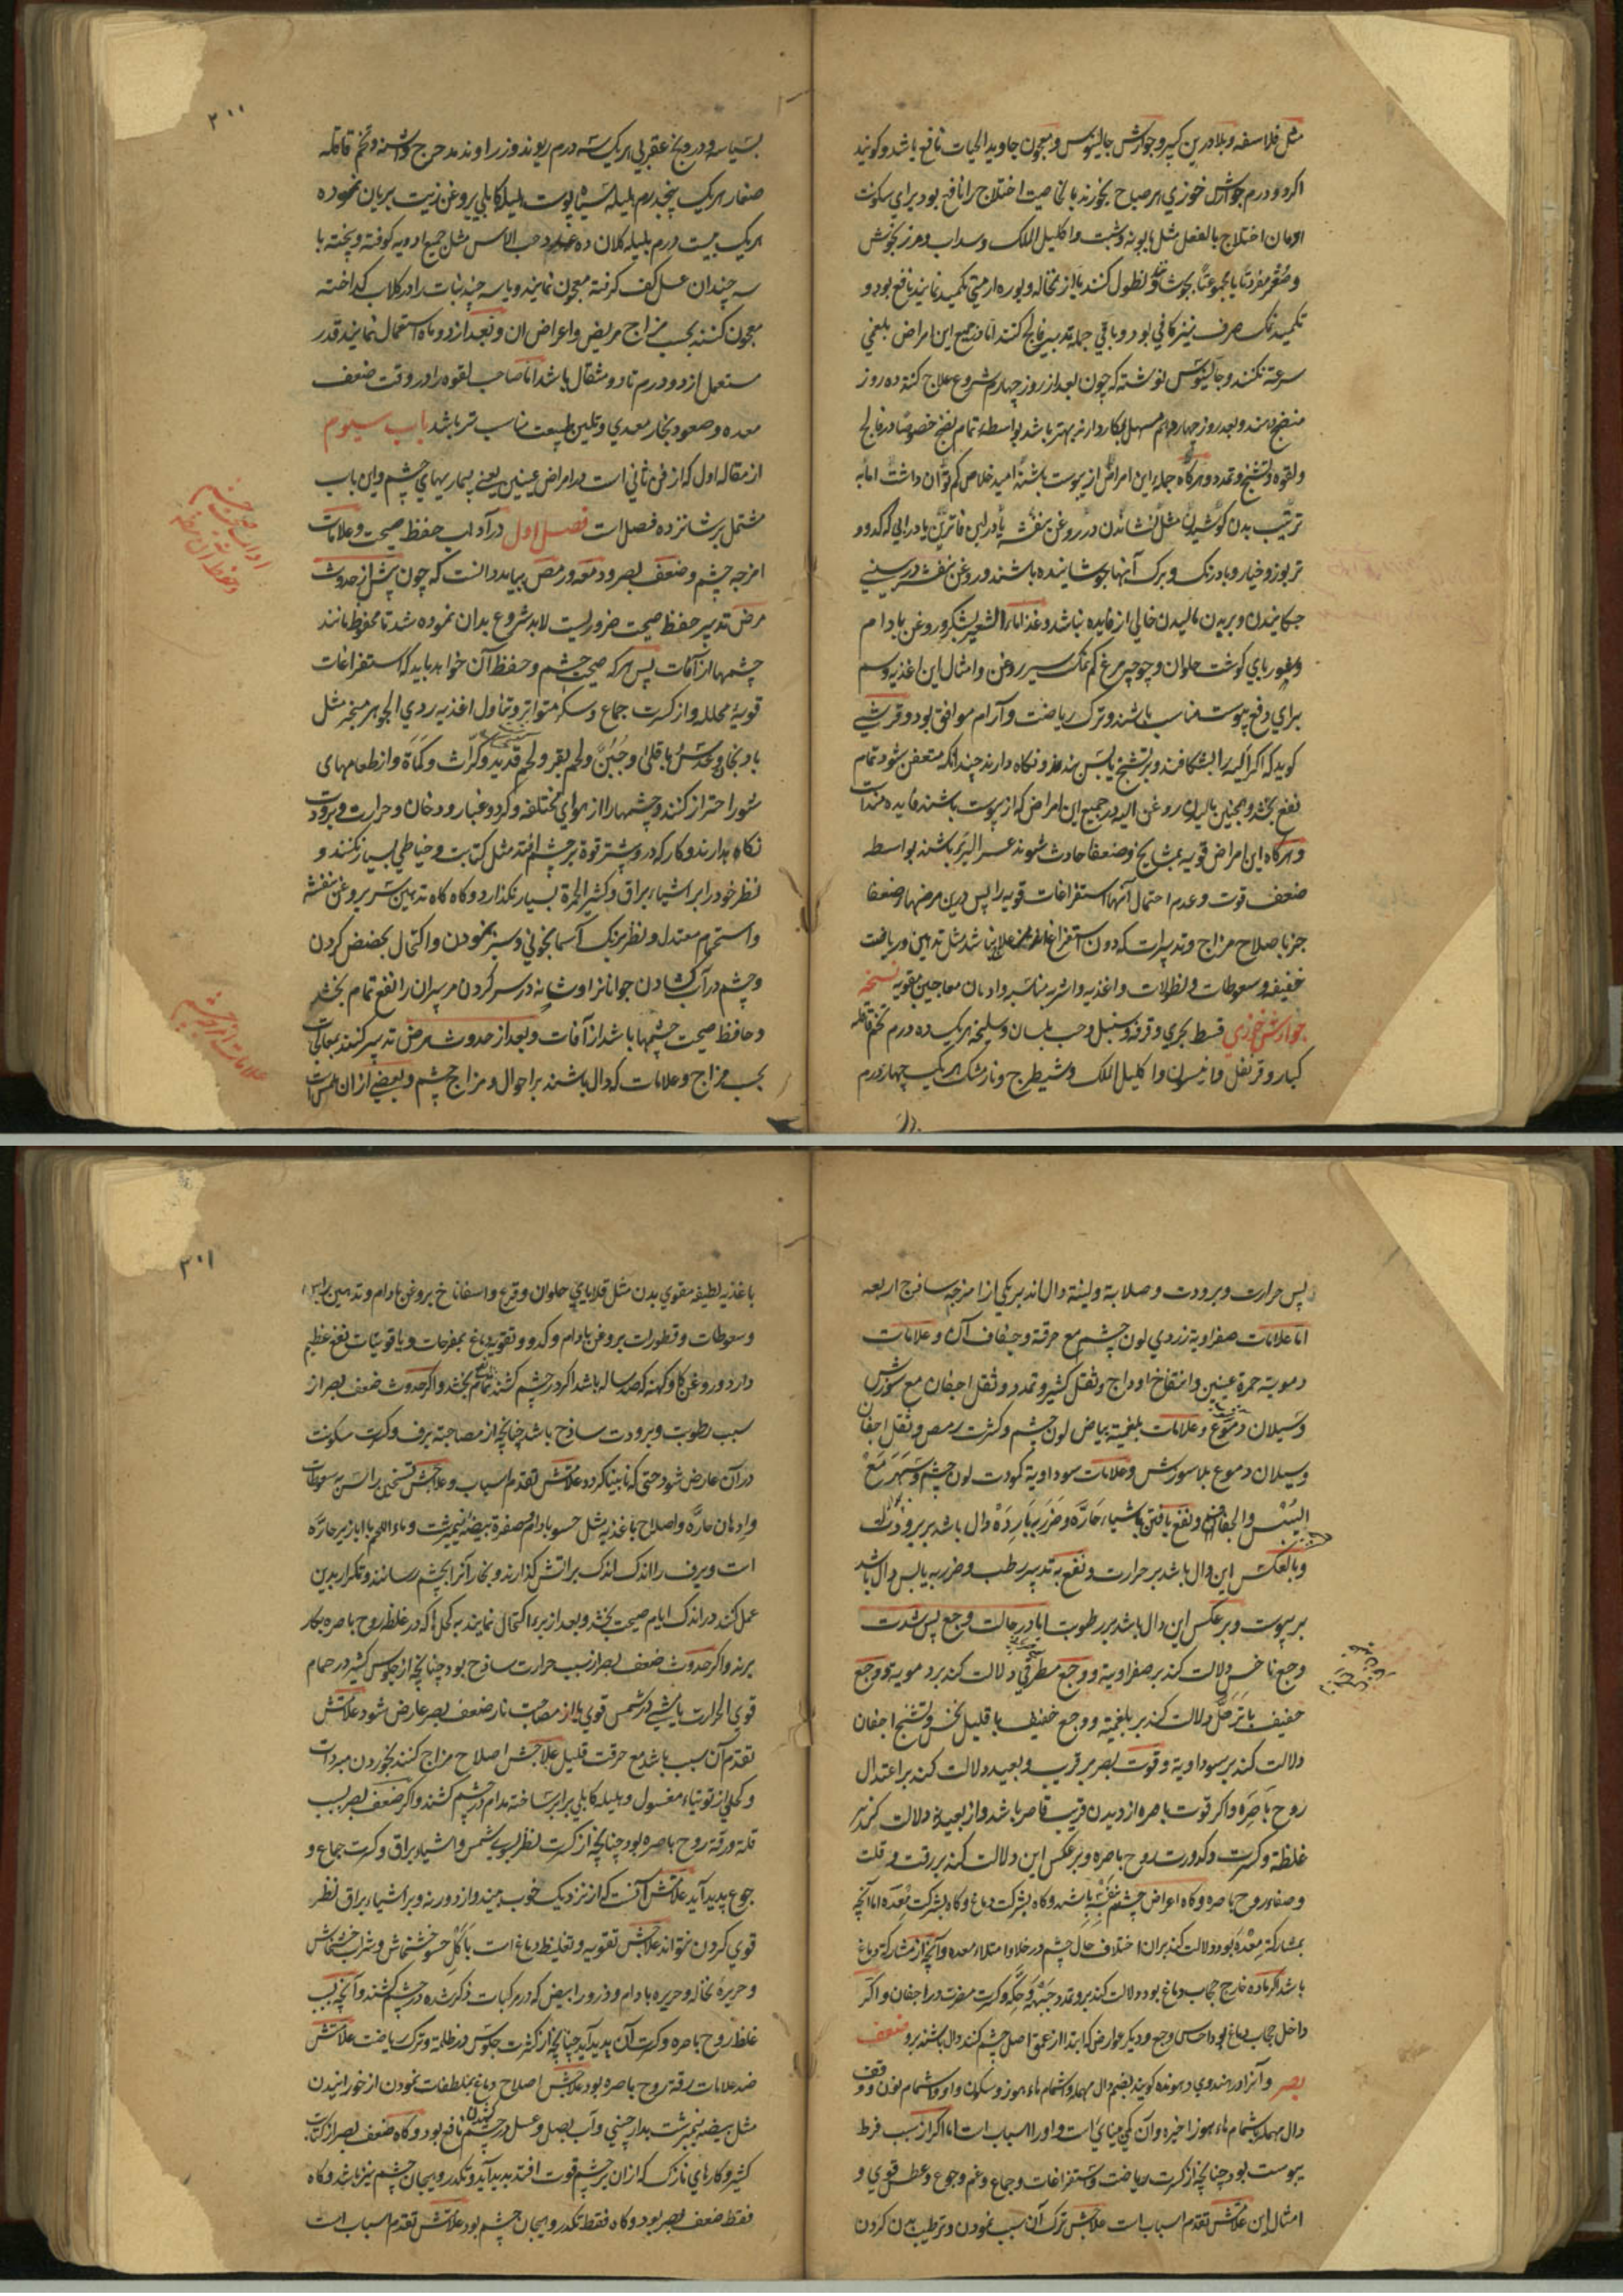 مثل فلاسفه و بلادرین کبیر و جوارش جالینوس و معجون جاوید الحیات نافع باشد و کویند
اکر دو درم جوارش خوزي هر صباح بخورند بالخاصیت اختلاج را نافع بود برای سکونت
ادمان اختلاج بالفعل مثل بابونه و شبت و اکلیل الملک و سداب و مرزنجوش
و صعتر مفردتًا یا مجموعتًا بجوشانند و نطول کنند یا از نخاله و بوره ارمني تکمید نمایند نافع بود و
تکمید نمک صرف نیز کافي بود و باقي جمله تدبیر فالج کنند اما در جمیع این امراض بلغمي
سرعت نکنند و جالینوس نوشته که چون بعد از روز چهارم شروع علاج کنند ده روز
منضج دهند و بعد روز چهاردهم مسهل بکار دارند بهتر باشد بواسطه تمام نضج خصوصًا در فالج
و لقوه و تشنج و تمدد و هرکاه جمله این امراض از یبوست باشند امید خلاص کم توان داشت اما به
ترتیب بدن کوشیدن مثل نشاندن در روغن بنفشه یا در ابن فاترین یا در آبي که کدو و
تربوز و خیار و بادرنک و برک آنها جوشانیده باشند و روغن بنفشه در بیني
چکانیدن و بر بدن مالیدن خالي از فایده نباشد و غذا ماء الشعیر بشکر و روغن بادام
و شوربای کوشت حلوان و چوچه مرغ کم نمک سیر روغن و امثال این اغذیه دسم
برای دفع یبوست مناسب باشند و ترک ریاضت و آرام موافق بود و قرشي
کوید که اکر الیه را بشکافند و بر تشنج یابس بندند و نکاه دارند چندانکه متعفن شود تمام
نفع بخشد و همچنین مالیدن روغن الیه در جمیع این امراض که از یبوست باشند فایده مندست
و هرکاه این امراض قویه بمشایخ و ضعفا حادث شوند عسر البرء باشند بواسطه
ضعف قوت و عدم احتمال آنها استفراغات قویه را پس درین مرضها و ضعفا
جز باصلاح مزاج و تدبیرات که دون استفراغ علاج نباشد مثل تدهین و ریاضت
خفیف و سعوطات و نطولات و اغذیه و اشربه مناسبه و ادهان معاجین مقویه نسخه
جوارش خوزي قسط بحري و قرفه و سنبل و حب بلسان و سلیخه هریک ده درم تخم قاقله
کبار و قرنفل و نانیسون و اکلیل الملک و شیطرج و نارمشک هریک چهار درم
۳۰۰
بسباسه و درونج عقربي هریک سه درم ریوند و زراوند مدحرج و اشنه و تخم قاقله
صغار هریک پنجدرم هلیله سیاه پوست هلیله کابلي بروغن زیت بریان نموده
هریک بیست درم بلیله کلان ده عدد حب الاس مثل جمیع ادویه کوفته و پخته با
سه چندان عسل کف کرفته معجون نمایند و یا سه چند نبات را در کلاب کداخته
معجون کنند بحسب مزاج مریض و اعراض ان و بعد از دو ماه استعمال نمایند قدر
مستعمل از دو درم تا دو مثقال باشد اما صاحب لقوه را در وقت ضعف
معده و صعود بخار معدي و تلیین طبیعت مناسب تر باشد باب سیوم
از مقاله اول که از فن ثاني است در امراض عینین یعنی بیماریهای چشم و این باب
مشتمل بر شانزده فصل است فصل اول در آداب حفظ صحت و علامات
امزجه چشم و ضعف بصر و دمعه و رمص بباید دانست که چون پیش از حدوث
مرض تدبیر حفظ صحت ضروریست لابد شروع بدان نموده شد تا محفوظ مانند
چشمها از آفات پس هرکه صحت چشم و حفظ آن خواهد باید که استفراغات
قویهٔ محلله و از کثرت جماع و سکر متواتر و تناول اغذیه ردي الجوهر مبخر مثل
بادنجان و عدس و باقلی و جبن و لحم بقر و لحم قدید و کراث و کماة و از طعامهای
شور احتراز کنند و چشمها را از هوای مختلفه و کرد و غبار و دخان و حرارت و برودت
نکاه بدارند و کار که در و بیشتر قوة بر چشم افتد مثل کتابت و خیاطي بسیار نکنند و
نظر خود را بر اشیاء براق و کثیر الحمرة بسیار نکذارد و کاه کاه تدهین سر بروغن بنفشه
و استحمام معتدل و نظر برنک آسمانجوني و سبز نمودن و اکتحال بحضض کردن
و چشم در آب کشادن جوانانرا و شانه در سر کردن مر پیران را نفع تمام بخشد
و حافظ صحت چشمها باشد از آفات و بعد از حدوث مرض تدبیر کنند بمعالجات
بحسب مزاج و علامات که دال باشند بر احوال و مزاج چشم و بعضي از ان ملمس است
آداب صحت چشم
و حفظ آن
علامات امزجه چشم
پس حرارت و برودت و صلابة و لینة دال اند بر یکي از امزجه ساذج اربعه
اما علامات صفراویة زردي لون چشم مع حرقة و جفاف آن و علامات
دمویة حمرة عینین و انتفاخ اوداج و ثقل کثیر و تمدد و ثقل اجفان مع سوزش
و سیلان دموع و علامات بلغمیه بیاض لون چشم و کثرت رمص و ثقل اجفان
و سیلان دموع بلا سوزش و علامات سوداویة کمودت لون چشم و سهر مع
الیبس و الجفاف و نفع یافتن باشیاء حاره و ضرر به بارده دال باشد بر برودت
و بالعکس این دال باشد بر حرارت و نفع به تدبیر رطب و ضرر به یابس دال باشد
بر یبوست و بر عکس این دال باشد بر رطوبت اما در حالت وجع پس شدت
وجع ناخس دلالت کند بر صفراویة و وجع مطرقي دلالت کند بر دمویة و وجع
خفیف با ترهل دلالت کند بر بلغمیة و وجع خفیف با قلیل نخس و تشنج اجفان
دلالت کند بر سوداویة و قوت بصر بر قریب و بعید دلالت کند بر اعتدال
روح باصره و اکر قوت باصره از دیدن قریب قاصر باشد و از بعید نه دلالت کند بر
غلظة و کثرت و کدورت روح باصره و بر عکس این دلالت کند بر رقت و قلت
و صفاء روح باصره و کاه اعراض چشم بنفسه باشد و کاه بشرکت دماغ و کاه بشرکت معده اما آنچه
بمشارکة معده بود دلالت کند بران اختلاف حال چشم در خلا و امتلاء معده و آنچه از مشارکة دماغ
باشد اکر ماده خارج حجاب دماغ بود دلالت کند برو تمدد جبهه و حکه و کثرت مضرت در اجفان و اکر
داخل حجاب دماغ بود احساس وجع و دیکر عوارض که ابتدا از عمق اصل چشم کنند دال باشند برو ضعف
بصر و آنرا در هندوي دهونده کویند بضم دال مهمله و اشمام هاء هوز و سکون واو و اشمام نون و وقف
دال مهمله باشمام هاء هوز اخیره و آن کمي بینایي است و او را اسباب است اما اکر از سبب فرط
یبوست بود چنانچه از کثرت ریاضت و استفراغات و جماع و غم و جوع و عطش قوي و
امثال این علامتش تقدم اسباب است علاجش ترک آن سبب نمودن و ترطیب بدن کردن
۳۰۱
باغذیه لطیفه مقوي بدن مثل قلایای حلوان و قرع و اسفاناخ بروغن بادام و تدهین براس
و سعوطات و قطورات بروغن بادام و کدو و تقویه دماغ بمفرحات و یاقوتیات نفع عظیم
دارد و روغن کاو کهنه که صد ساله باشد اکر در چشم کشند نفع تمام بخشد و اکر حدوث ضعف بصر از
سبب رطوبت و برودت ساذج باشد چنانچه از مصاحبة برف و کثرت سکونت
در آن عارض شود حتی که نابینا کردد علامتش تقدم اسباب و علاجش تسخین راسن به سعوطات
و ادهان حاره و اصلاح باغذیه مثل حسو بادام و صفرة بیضه نیمبرشت و ماء اللحم با ابازیر حاره
است و برف را اندک اندک بر اتش کذارند و بخار آنرا بچشم رسانند و تکرار بدین
عمل کند در اندک ایام صحت بخشد و بعد از برء اکتحال نمایند به کحلها که در غلظ روح باصره بکار
برند و اکر حدوث ضعف بصر از سبب حرارت ساذج بود چنانچه از جلوس کثیر در حمام
قوي الحرارت یا مشي در شمس قوي یا از مصاحبت نار ضعف بصر عارض شود علامتش
تقدم آن سبب باشد مع حرقت قلیل علاجش اصلاح مزاج کنند بخوردن مبردات
و کحلي از توتیاء مغسول و هلیله کابلي برابر ساخته مدام در چشم کشند و اکر ضعف بصر بسبب
قلة و رقة روح باصره بود چنانچه از کثرت نظر بسوي شمس و اشیاء براق و کثرت جماع و
جوع پدید آید علامتش آنست که از نزدیک خوب بیند و از دور نه و بر اشیاء براق نظر
قوي کردن نتواند علاجش تقویه و تغلیظ دماغ است باکل حسو خشخاش و شراب خشخاش
و حریره نخاله و حریره بادام و ذرور ابیض که در مرکبات ذکر شده در چشم کشند و آنچه بسبب
غلظ روح باصره و کثرت آن پدید آید چنانچه از کثرت جلوس در ظلمة و ترک ریاضت علامتش
ضد علامات رقة روح باصره بود علاجش اصلاح دماغ بملطفات نمودن از خورانیدن
مثل بیضه نیمبرشت بدارچیني و آب بصل و عسل در چشم کشیدن نافع بود و کاه ضعف بصر از کتابت
کثیر و کارهای نازک که از ان بر چشم قوت افتد پدید آید و تکدر و هیجان چشم نیز باشد و کاه
فقط ضعف بصر بود و کاه فقط تکدر و هیجان چشم بود علامتش تقدم اسباب است